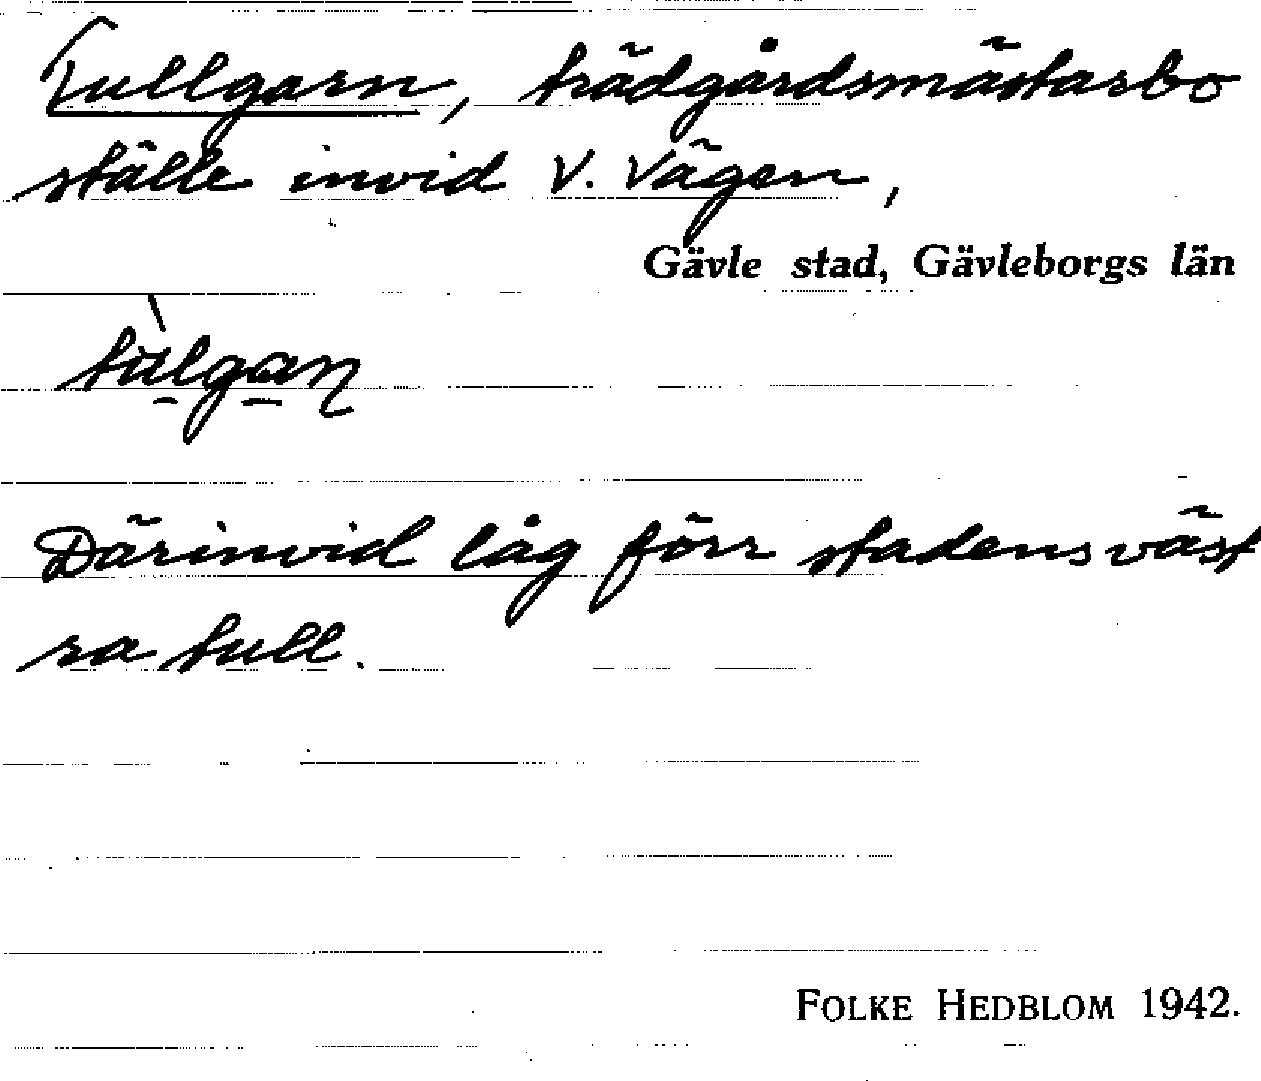 Tullgarn, trädgårdsmästarbo
ställe invid V. Vägen,
Gävle stad, Gävleborgs län
tùlgaɳ
Därinvid låg förr stadens väst
ra tull.
FOLKE HEDBLOM 1942.